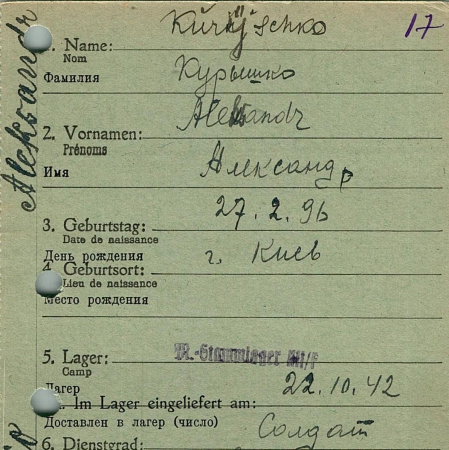 Kuryschko
17
1. Name:
Nom
Фамилия
Курышко
Aleksandr
2. Vornamen:
Prénoms
Имя
Александр
27.2.96
3. Geburtstag:
Date de naissance
День рождения
г. Киев
4. Geburtsort:
Lieu de naissance
Место рождения
5. Lager:
Camp
M.-Stammlager
Лагер
22.10.42
Im Lager eingeliefert am:
Доставлен в лагер (число)
Солдат
6. Dienstgrad:
Aleksandr